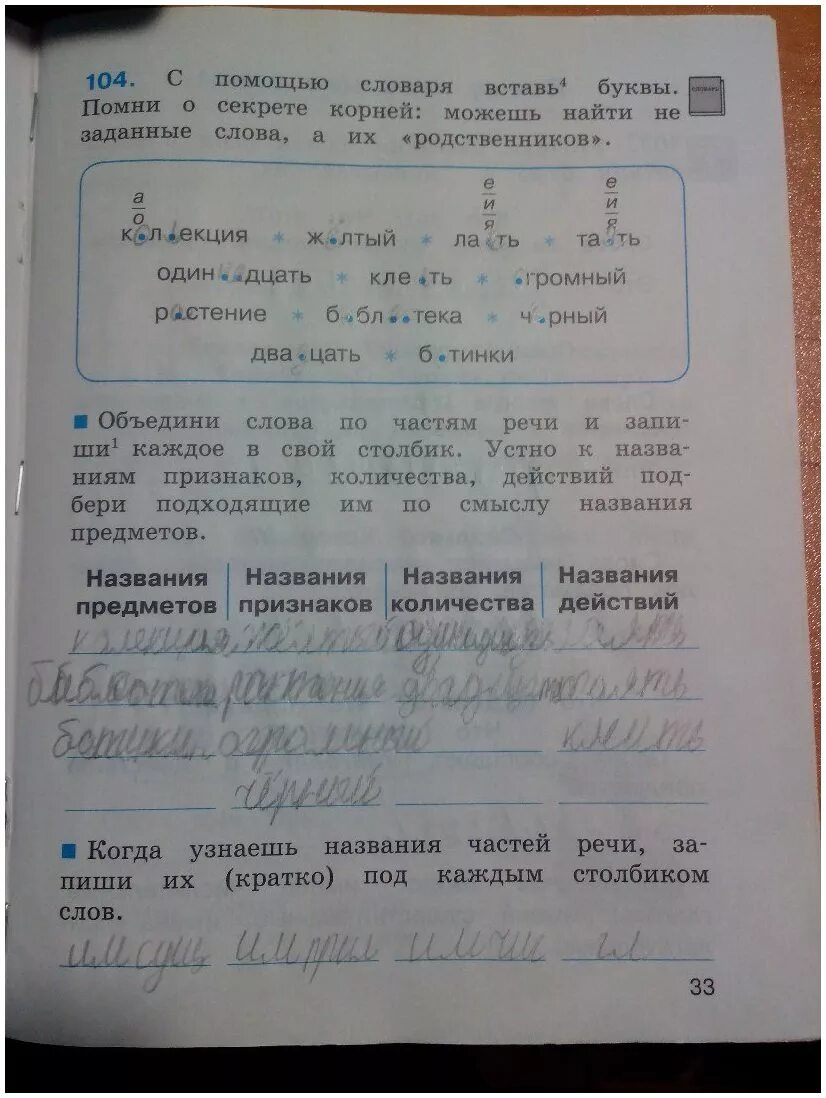 104. С помощью словаря вставь⁴ буквы.
СЛОВАРЬ
Помни о секрете корней: можешь найти не
заданные слова, а их «родственников».
а е е
о и и
я я
к.л.екция * ж.лтый * ла.ть * та.ть
один..дцать * кле.ть * .громный
р.стение * б.бл..тека * ч.рный
два.цать * б.тинки
Объедини слова по частям речи и запи-
ши¹ каждое в свой столбик. Устно к назва-
ниям признаков, количества, действий под-
бери подходящие им по смыслу названия
предметов.
Названия Названия Названия Названия
предметов признаков количества действий
колекция
библиотека растения
ботинки огромный клеить
чёрный
Когда узнаешь названия частей речи, за-
пиши их (кратко) под каждым столбиком
слов.
им сущ им прил им чис гл
33